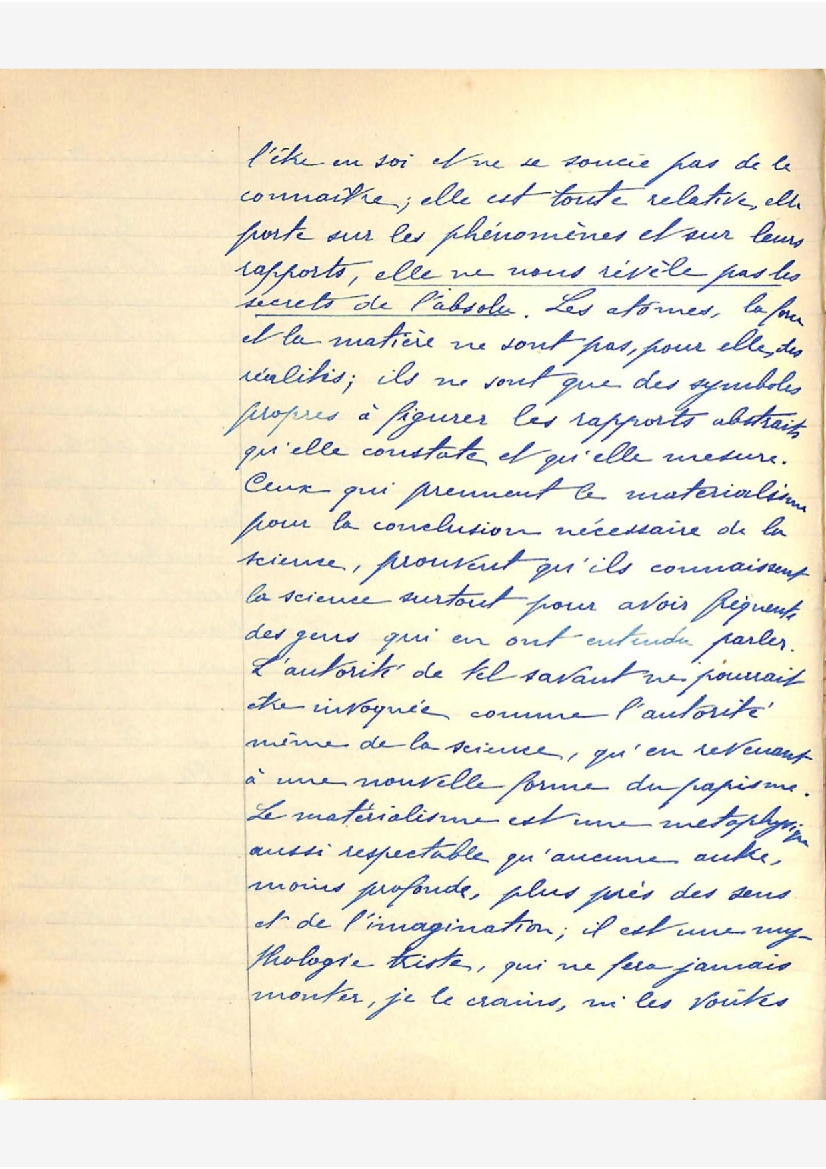 l'être en soi et ne se soucie pas de le
connaître; elle est toute relative, elle
porte sur les phénomènes et sur leurs
rapports, elle ne nous révèle pas les
secrets de l'absolu. Les atomes, la force
et la matière ne sont pas, pour elle, des
réalités; ils ne sont que des symboles
propres à figurer les rapports abstraits
qu'elle constate et qu'elle mesure.
Ceux qui prennent le matérialisme
pour la conclusion nécessaire de la
science, prouvent qu'ils connaissent
la science surtout pour avoir fréquenté
des gens qui en ont entendu parler.
L'autorité de tel savant ne pourrait
être invoquée comme l'autorité
même de la science, qu'en revenant
à une nouvelle forme du papisme.
Le matérialisme est une métaphysique
aussi respectable qu'aucune autre,
moins profonde, plus près des sens
et de l'imagination; il est une my-
thologie triste, qui ne fera jamais
monter, je le crains, ni les voûtes